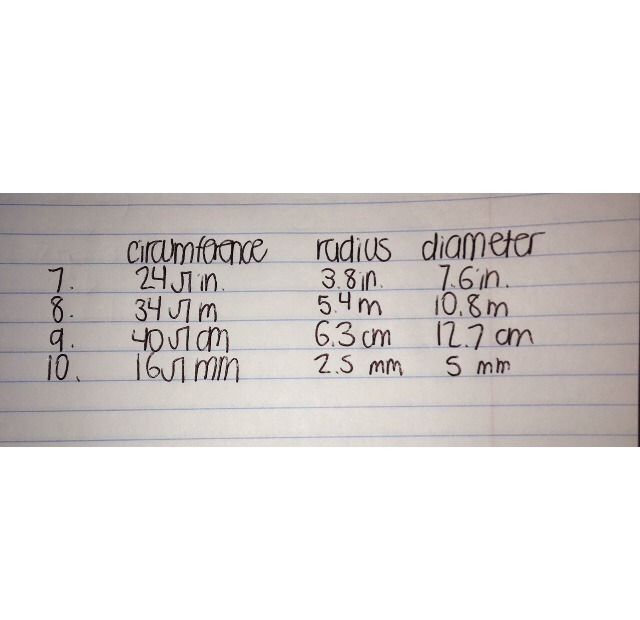 circumference radius diameter
7. 24π in. 3.8 in. 7.6 in.
8. 34π m 5.4 m 10.8 m
9. 40π cm 6.3 cm 12.7 cm
10. 16π mm 2.5 mm 5 mm